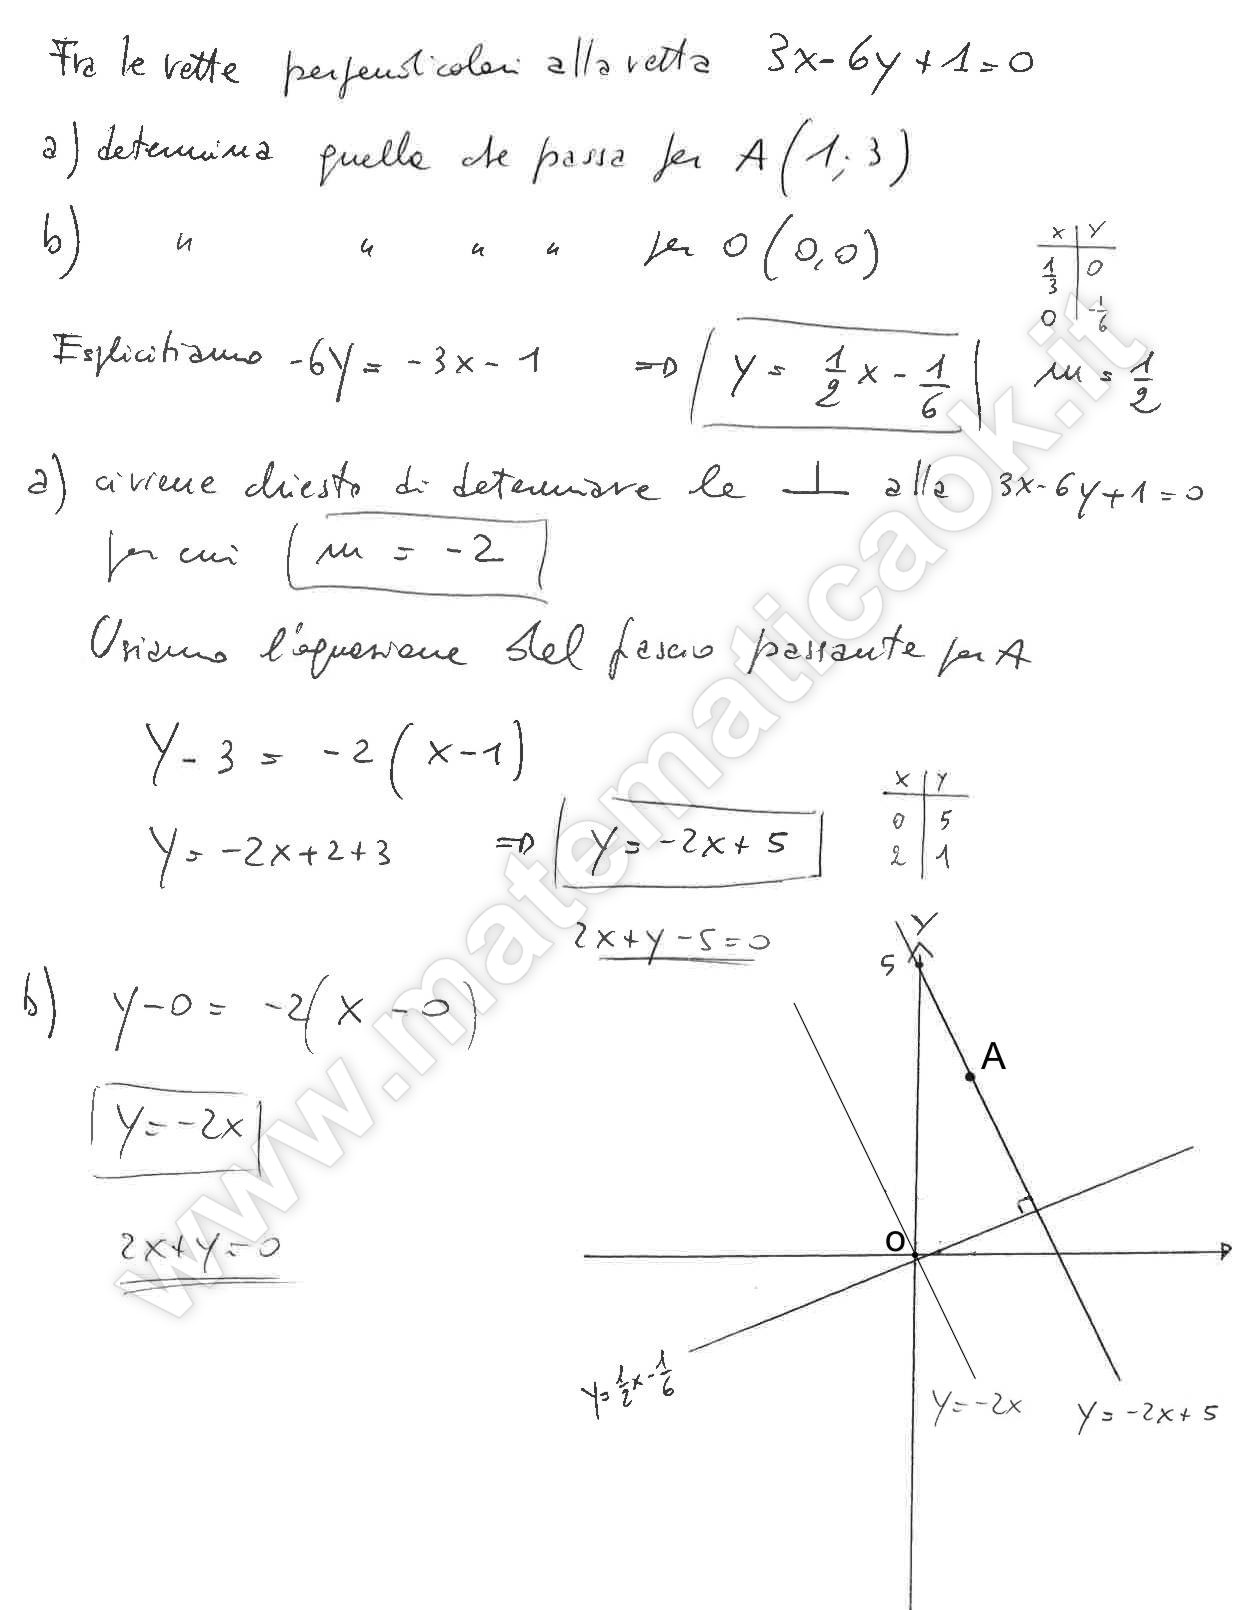 Fra le rette perpendicolari alla retta 3x-6y+1=0
a) determina quella che passa per A(1;3)
b) " " " " per O(0,0)
x | y
1/3 | 0
0 | -1/6
Esplicitiamo -6y = -3x-1 => y = 1/2 x - 1/6 m = 1/2
a) ci viene chiesto di determinare le ⊥ alla 3x-6y+1=0
per cui m = -2
Usiamo l'equazione del fascio passante per A
y-3 = -2(x-1)
y = -2x+2+3 => y = -2x+5
x | y
0 | 5
2 | 1
2x+y-5=0
b) y-0 = -2(x-0)
y = -2x
2x+y=0
y
5
A
O
y = 1/2 x - 1/6
y = -2x
y = -2x+5
www.matematicaok.it